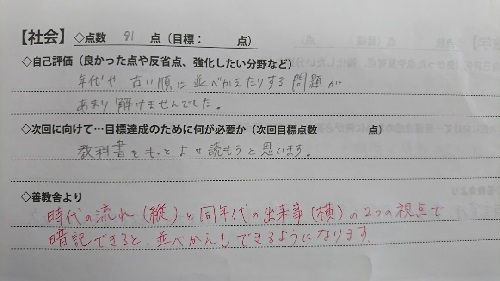 【社会】 ◇点数 91 点（目標： 点）
◇自己評価（良かった点や反省点、強化したい分野など）
年代や古い順に並べかえたりする問題が
あまり解けませんでした。
◇次回に向けて…目標達成のために何が必要か（次回目標点数 点）
教科書をもっとよく読もうと思います。
◇善教舎より
時代の流れ（縦）と同年代の出来事（横）の2つの視点で
暗記できると、並べかえ！できるようになります。